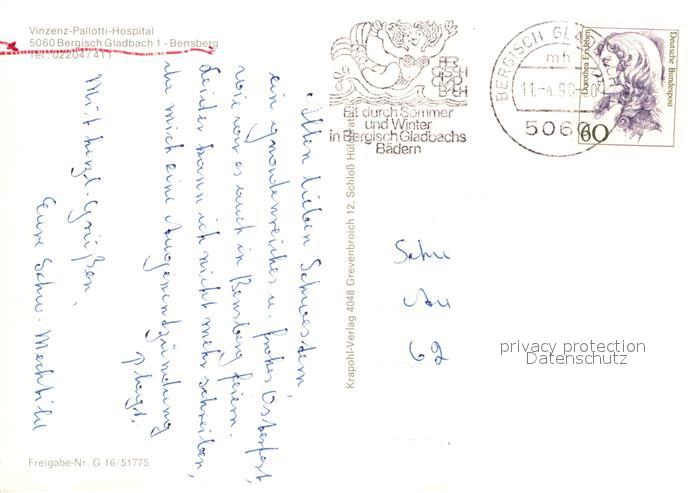 Vinzenz-Pallotti-Hospital
5060 Bergisch Gladbach 1 - Bensberg
Tel.: 02204/411
Allen lieben Schwestern,
ein gnadenreiches u. frohes Osterfest,
wie wir es auch in Bensberg feiern.
Leider kann ich nicht mehr schreiben,
da mich eine Augenentzündung
plagt.
Mit herzl. Grüßen,
Eure Schw. Mechtild
Freigabe-Nr. G 16/51775
Krapohl-Verlag 4048 Grevenbroich 12, Schloß Hül
BER
GISCH
GLAD
BACH
Fit durch Sommer
und Winter
in Bergisch Gladbachs
Bädern
BERGISCH GLA
mh
11.-4.90-
506
Dorothea Erxleben
Deutsche Bundespost
60
Schw
An
62
privacy protection
Datenschutz